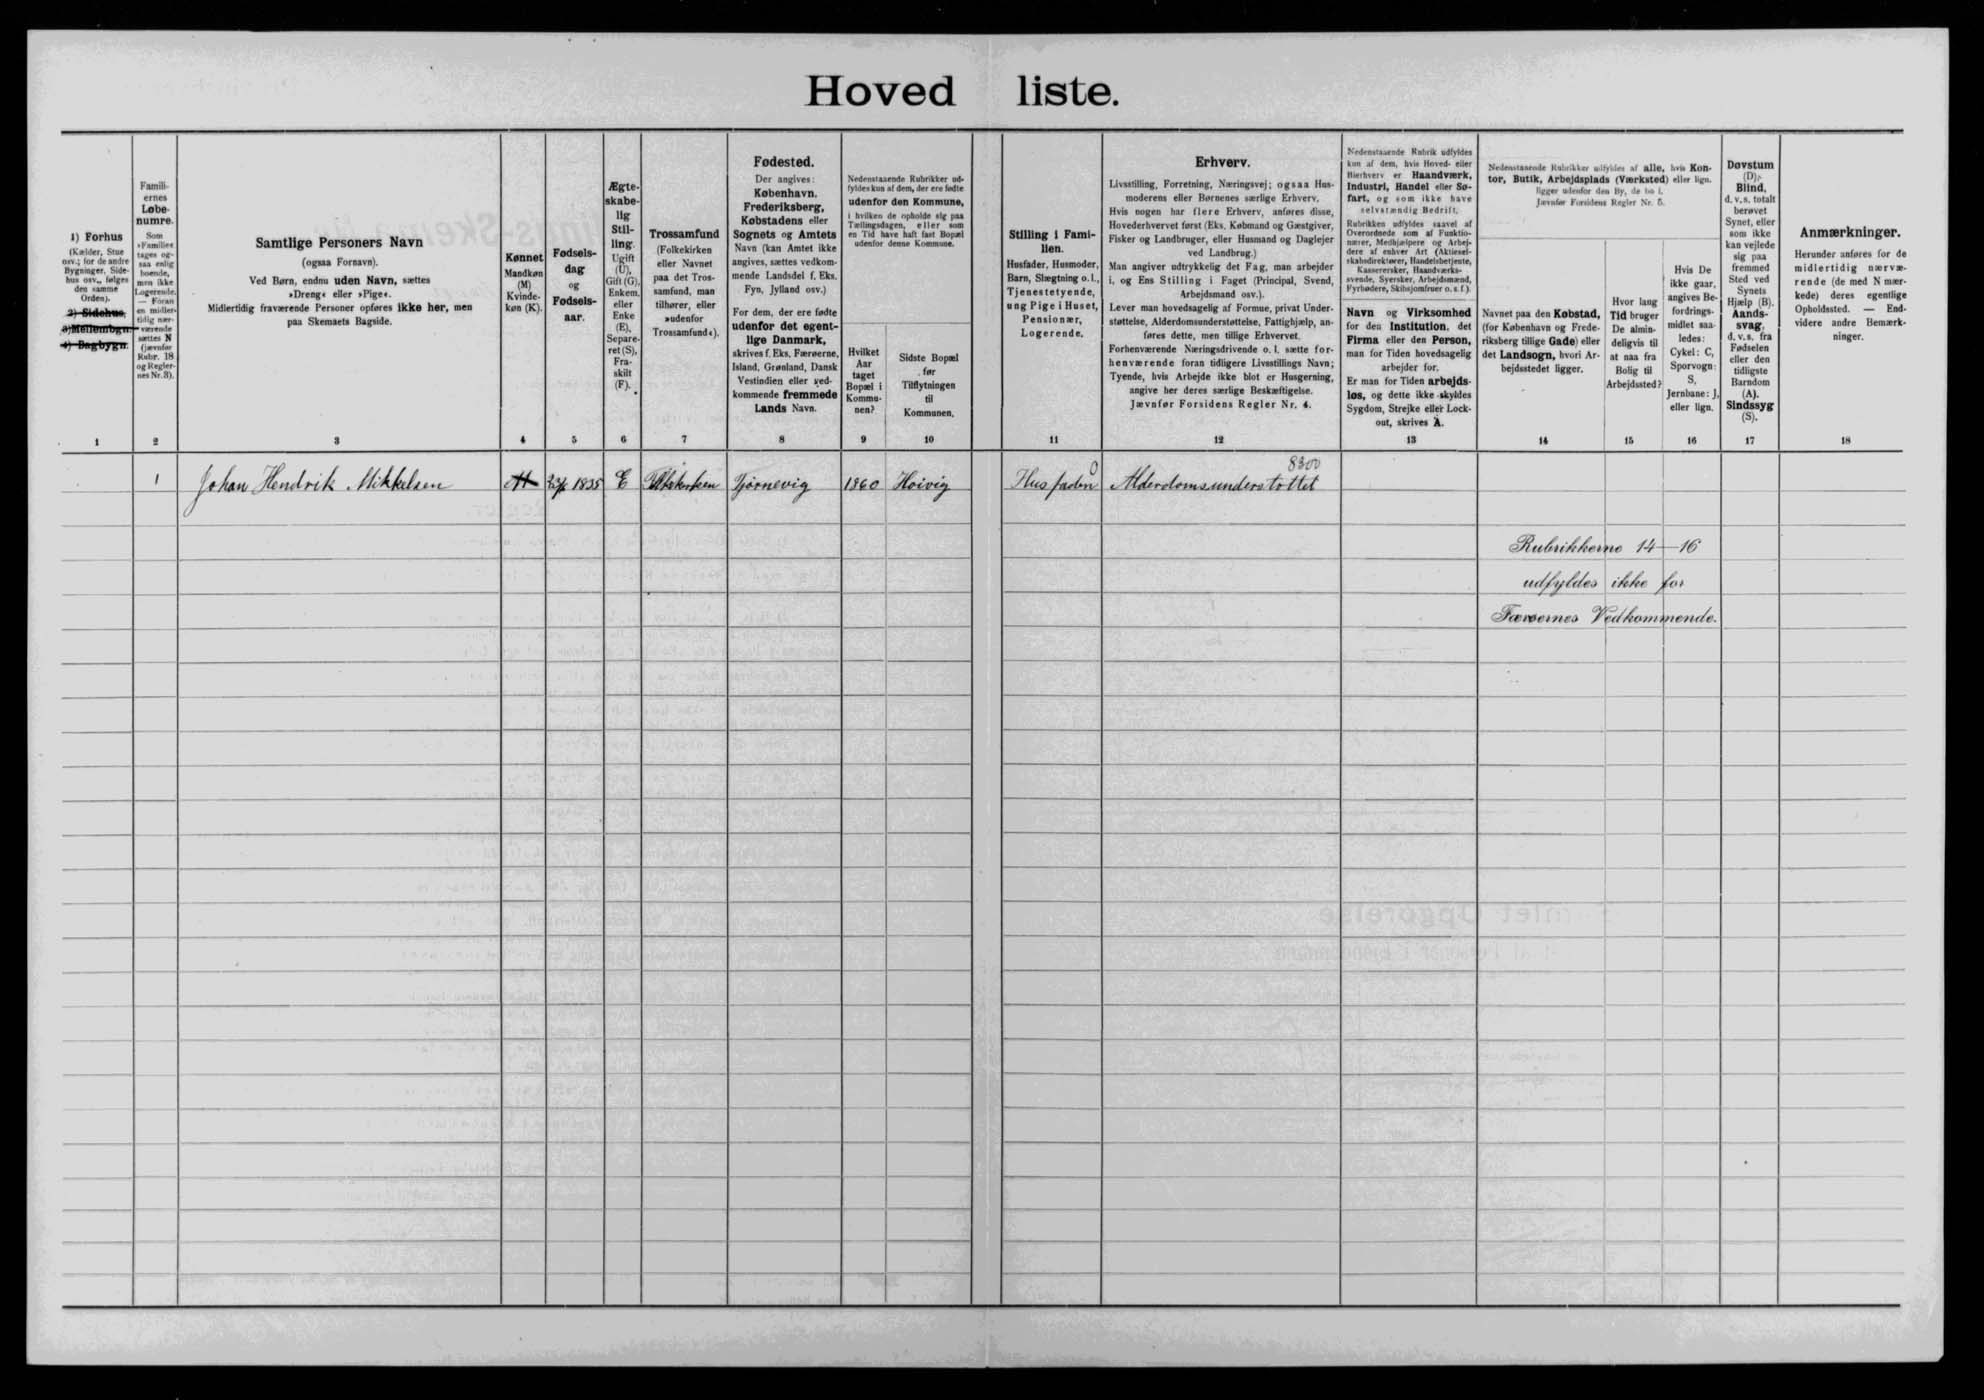 Hovedliste.
1) Forhus
(Kælder, Stue
osv.; for de andre
Bygninger, Side-
hus osv., følges
den samme
Orden).
2) Sidehus,
3) Mellembgn.
4) Bagbygn.
Famili-
ernes
Løbe-
numre.
Som
»Familie«
tages og-
saa enlig
boende,
men ikke
Logerende.
— Foran
en midler-
tidig nær-
værende
sættes N
(jævnfør
Rubr. 18
og Regler-
nes Nr. 3).
Samtlige Personers Navn
(ogsaa Fornavn).
Ved Børn, endnu uden Navn, sættes
»Dreng« eller »Pige«.
Midlertidig fraværende Personer opføres ikke her, men
paa Skemaets Bagside.
Kønnet
Mandkøn
(M)
Kvinde-
køn (K).
Fødsels-
dag
og
Fødsels-
aar.
Ægte-
skabe-
lig
Stil-
ling.
Ugift
(U),
Gift (G),
Enkem.
eller
Enke
(E),
Separe-
ret (S),
Fra-
skilt
(F).
Trossamfund
(Folkekirken
eller Navnet
paa det Tros-
samfund, man
tilhører, eller
»udenfor
Trossamfund«).
Fødested.
Der angives:
København,
Frederiksberg,
Købstadens eller
Sognets og Amtets
Navn (kan Amtet ikke
angives, sættes vedkom-
mende Landsdel f. Eks.
Fyn, Jylland osv.)
For dem, der ere fødte
udenfor det egent-
lige Danmark,
skrives f. Eks. Færøerne,
Island, Grønland, Dansk
Vestindien eller ved-
kommende fremmede
Lands Navn.
Nedenstaaende Rubrikker ud-
fyldes kun af dem, der ere fødte
udenfor den Kommune,
i hvilken de opholde sig paa
Tællingsdagen, eller som
en Tid have haft fast Bopæl
udenfor denne Kommune.
Hvilket
Aar
taget
Bopæl i
Kommu-
nen?
Sidste Bopæl
før
Tilflytningen
til
Kommunen.
Stilling i Fami-
lien.
Husfader, Husmoder,
Barn, Slægtning o. l.,
Tjenestetyende,
ung Pige i Huset,
Pensionær,
Logerende.
Erhverv.
Livsstilling, Forretning, Næringsvej; ogsaa Hus-
moderens eller Børnenes særlige Erhverv.
Hvis nogen har flere Erhverv, anføres disse,
Hovederhvervet først (Eks. Købmand og Gæstgiver,
Fisker og Landbruger, eller Husmand og Daglejer
ved Landbrug.)
Man angiver udtrykkelig det Fag, man arbejder
i, og Ens Stilling i Faget (Principal, Svend,
Arbejdsmand osv.).
Lever man hovedsagelig af Formue, privat Under-
støttelse, Alderdomsunderstøttelse, Fattighjælp, an-
føres dette, men tillige Erhvervet.
Forhenværende Næringsdrivende o. l. sætte for-
henværende foran tidligere Livsstillings Navn;
Tyende, hvis Arbejde ikke blot er Husgerning,
angive her deres særlige Beskæftigelse.
Jævnfør Forsidens Regler Nr. 4.
Nedenstaaende Rubrik udfyldes
kun af dem, hvis Hoved- eller
Bierhverv er Haandværk,
Industri, Handel eller Sø-
fart, og som ikke have
selvstændig Bedrift.
Rubrikken udfyldes saavel af
Overordnede som af Funktio-
nærer, Medhjælpere og Arbej-
dere af enhver Art (Aktiesel-
skabsdirektører, Handelsbetjente,
Kasserersker, Haandværks-
svende, Syersker, Arbejdsmænd,
Fyrbødere, Skibsjomfruer o. s. f.).
Navn og Virksomhed
for den Institution, det
Firma eller den Person,
man for Tiden hovedsagelig
arbejder for.
Er man for Tiden arbejds-
løs, og dette ikke skyldes
Sygdom, Strejke eller Lock-
out, skrives A.
Nedenstaaende Rubrikker udfyldes af alle, hvis Kon-
tor, Butik, Arbejdsplads (Værksted) eller lign.
ligger udenfor den By, de bo i.
Jævnfør Forsidens Regler Nr. 5.
Navnet paa den Købstad,
(for København og Frede-
riksberg tillige Gade) eller
det Landsogn, hvori Ar-
bejdsstedet ligger.
Hvor lang
Tid bruger
De almin-
deligvis til
at naa fra
Bolig til
Arbejdssted?
Hvis De
ikke gaar,
angives Be-
fordrings-
midlet saa-
ledes:
Cykel: C,
Sporvogn:
S,
Jernbane: J,
eller lign.
Døvstum
(D),
Blind,
d. v. s. totalt
berøvet
Synet, eller
som ikke
kan vejlede
sig paa
fremmed
Sted ved
Synets
Hjælp (B).
Aands-
svag,
d. v. s. fra
Fødselen
eller den
tidligste
Barndom
(A).
Sindssyg
(S).
Anmærkninger.
Herunder anføres for de
midlertidig nærvæ-
rende (de med N mær-
kede) deres egentlige
Opholdssted. — End-
videre andre Bemærk-
ninger.
1 2 3 4 5 6 7 8 9 10 11 12 13 14 15 16 17 18
8300
1 Johan Hendrik Mikkelsen M 1835 E Folkekirken Tjørnevig 1860 Hoivig Husfader Alderdomsunderstøttet
Rubrikkerne 14—16
udfyldes ikke for
Færøernes Vedkommende.